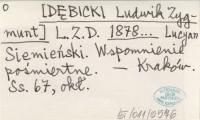 O
[DĘBICKI Ludwik Zyg-
munt] L.Z.D. 1878... Lucyan
Siemieński. Wspomnienie
pośmiertne. — Kraków.
Ss. 67, okł.